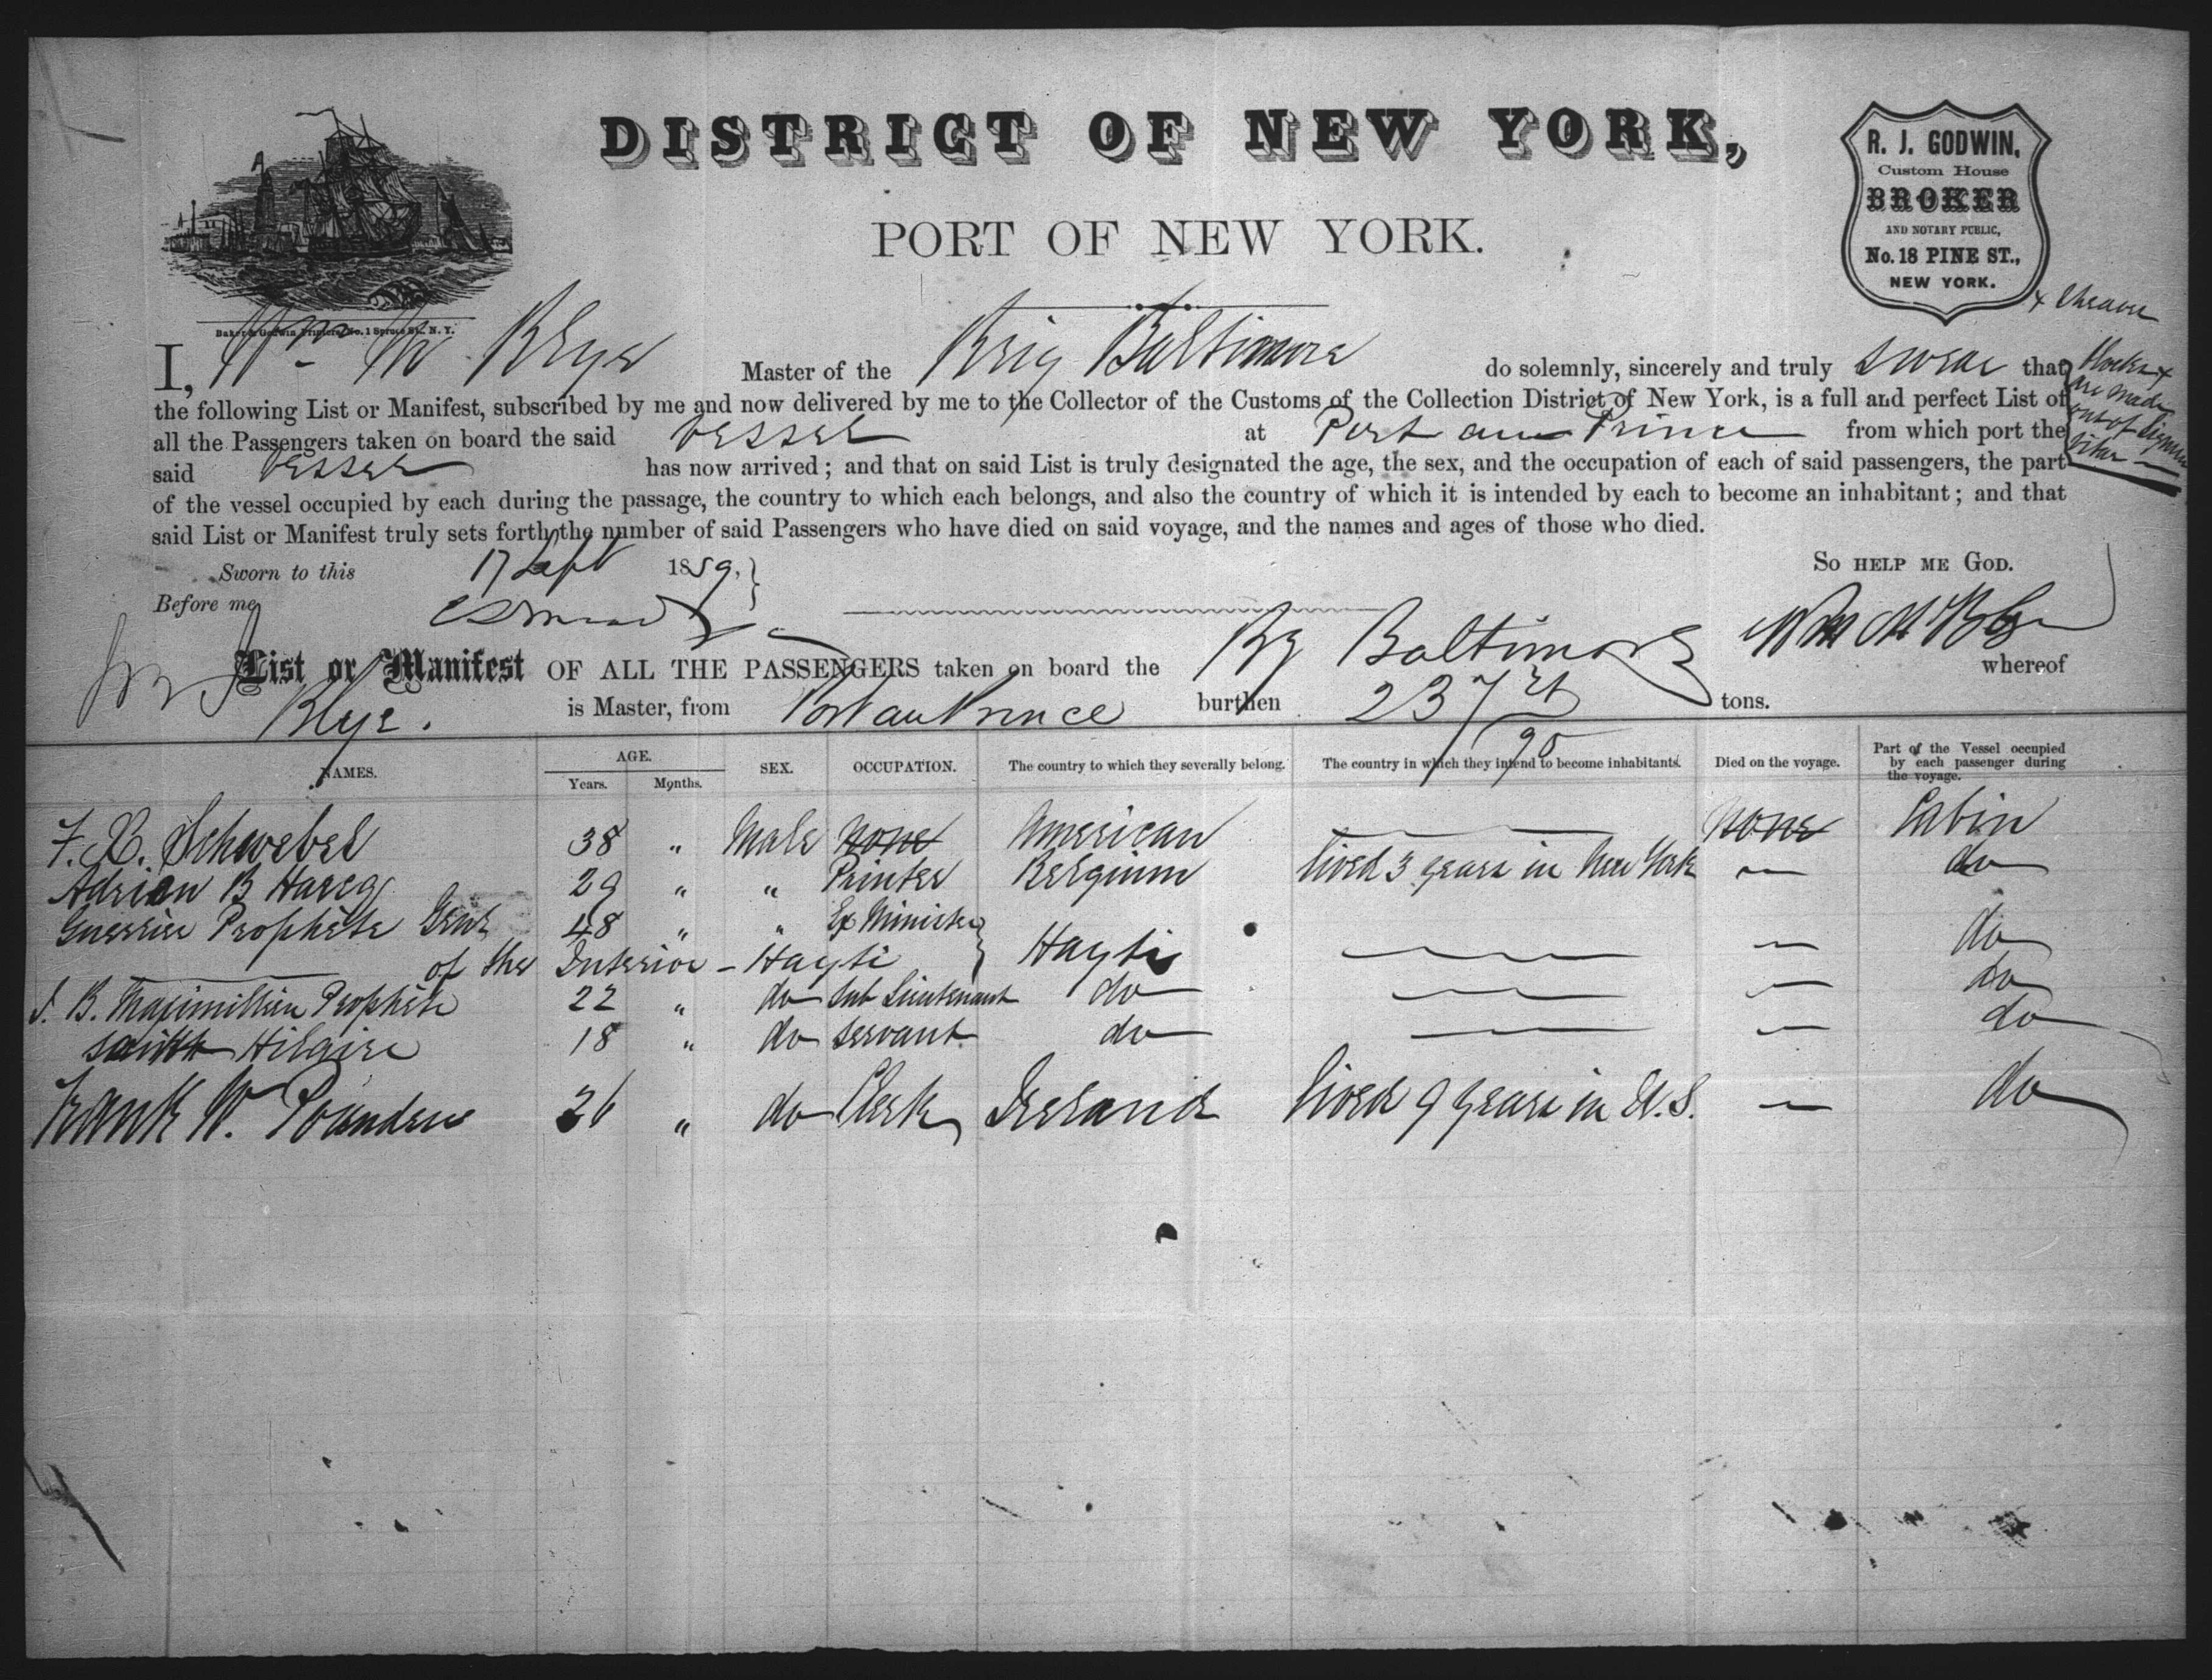 DISTRICT OF NEW YORK,
PORT OF NEW YORK.
R. J. GODWIN,
Custom House
BROKER
AND NOTARY PUBLIC,
No. 18 PINE ST.,
NEW YORK.
Baker & Godwin Printers, No. 1 Spruce St., N. Y.
I, Wm M Blye Master of the Brig Baltimore do solemnly, sincerely and truly swear that
the following List or Manifest, subscribed by me and now delivered by me to the Collector of the Customs of the Collection District of New York, is a full and perfect List of
all the Passengers taken on board the said Vessel at Port au Prince from which port the
said Vessel has now arrived; and that on said List is truly designated the age, the sex, and the occupation of each of said passengers, the part
of the vessel occupied by each during the passage, the country to which each belongs, and also the country of which it is intended by each to become an inhabitant; and that
said List or Manifest truly sets forth the number of said Passengers who have died on said voyage, and the names and ages of those who died.
are made
out of
Sworn to this 17 Sept 1859, So HELP ME GOD.
Before me
Wm M Blye
List or Manifest OF ALL THE PASSENGERS taken on board the Bg Baltimore whereof
Blye. is Master, from Port au Prince burthen 237 tons.
NAMES. AGE. Years. Months. SEX. OCCUPATION. The country to which they severally belong. The country in which they intend to become inhabitants. Died on the voyage. Part of the Vessel occupied by each passenger during the voyage.
F. X. Schwebel 38 " Male None American None Cabin
Adrien B Hareg 29 " " Printer Belgium lived 3 years in New York do
Guerrier Prophete Genl 48 " " Ex Minister do
of the Interior - Hayti Hayti
J. B. Maximillien Prophete 22 " do Sub Lieutenant do do
Saint Hilaire 18 " do servant do do
Frank W. Pounden 26 " do Clerk Ireland lived 9 years in U.S. do